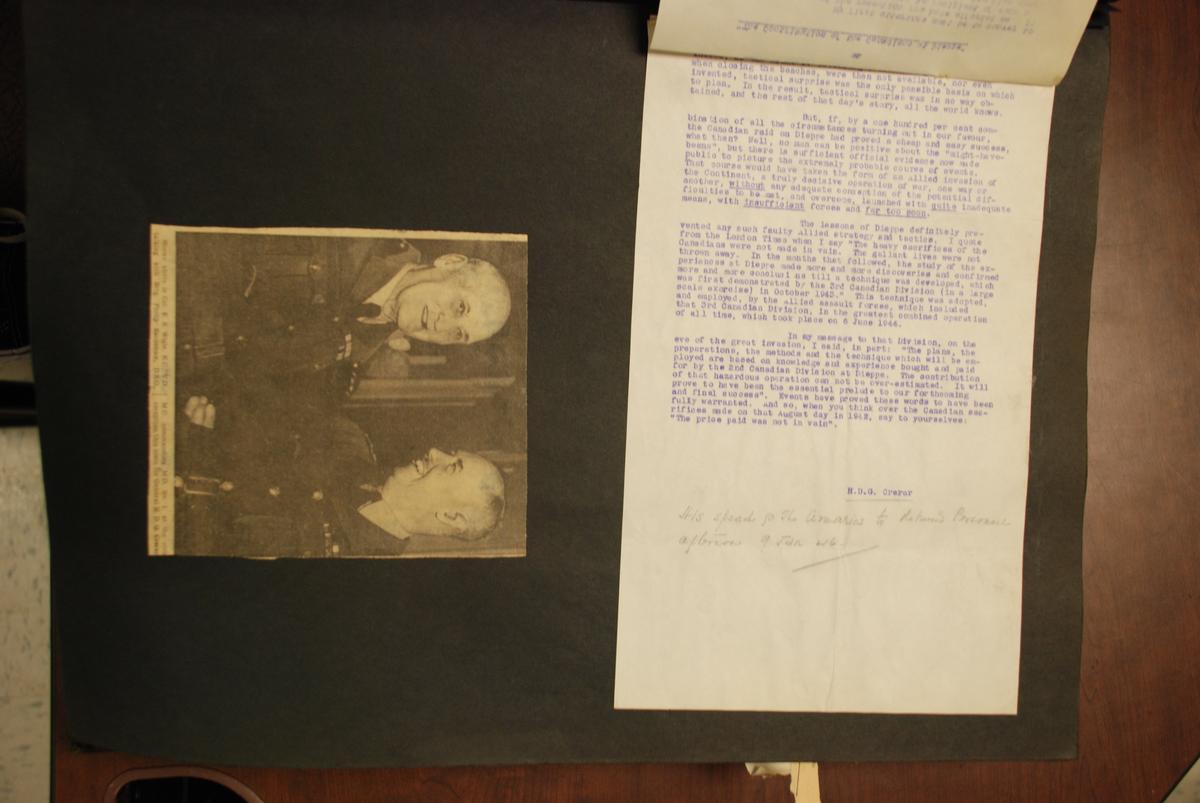 when closing the beaches, were then not available, nor even
invented, tactical surprise was the only possible basis on which
to plan. In the result, tactical surprise was in no way ob-
tained, and the rest of that day's story, all the world knows.
But, if, by a one hundred per cent com-
bination of all the circumstances turning out in our favour,
the Canadian raid on Dieppe had proved a cheap and easy success,
what then? Well, no man can be positive about the "might-have-
beens", but there is sufficient official evidence now made
public to picture the extremely probable course of events.
That course would have taken the form of an Allied invasion of
the Continent, a truly decisive operation of war, one way or
another, without any adequate conception of the potential dif-
ficulties to be met, and overcome, launched with quite inadequate
means, with insufficient forces and far too soon.
The lessons of Dieppe definitely pre-
vented any such faulty Allied strategy and tactics. I quote
from the London Times when I say "The heavy sacrifices of the
Canadians were not made in vain. The gallant lives were not
thrown away. In the months that followed, the study of the ex-
periences at Dieppe made more and more discoveries and confirmed
more and more till a technique was developed, which
was first demonstrated by the 3rd Canadian Division (in a large
scale exercise) in October 1943." This technique was adopted,
and employed, by the Allied assault forces, which included
that 3rd Canadian Division, in the greatest combined operation
of all time, which took place on 6 June 1944.
In my message to that Division, on the
eve of the great invasion, I said, in part: "The plans, the
preparations, the methods and the technique which will be em-
ployed are based on knowledge and experience bought and paid
for by the 2nd Canadian Division at Dieppe. The contribution
of that hazardous operation can not be over-estimated. It will
prove to have been the essential prelude to our forthcoming
and final success". Events have proved these words to have been
fully warranted. And so, when you think over the Canadian sac-
rifices made on that August day in 1942, say to yourselves:
"The price paid was not in vain".
H.D.G. Crerar
His speech to the Armories to Personnel
afternoon 9 Jan 46